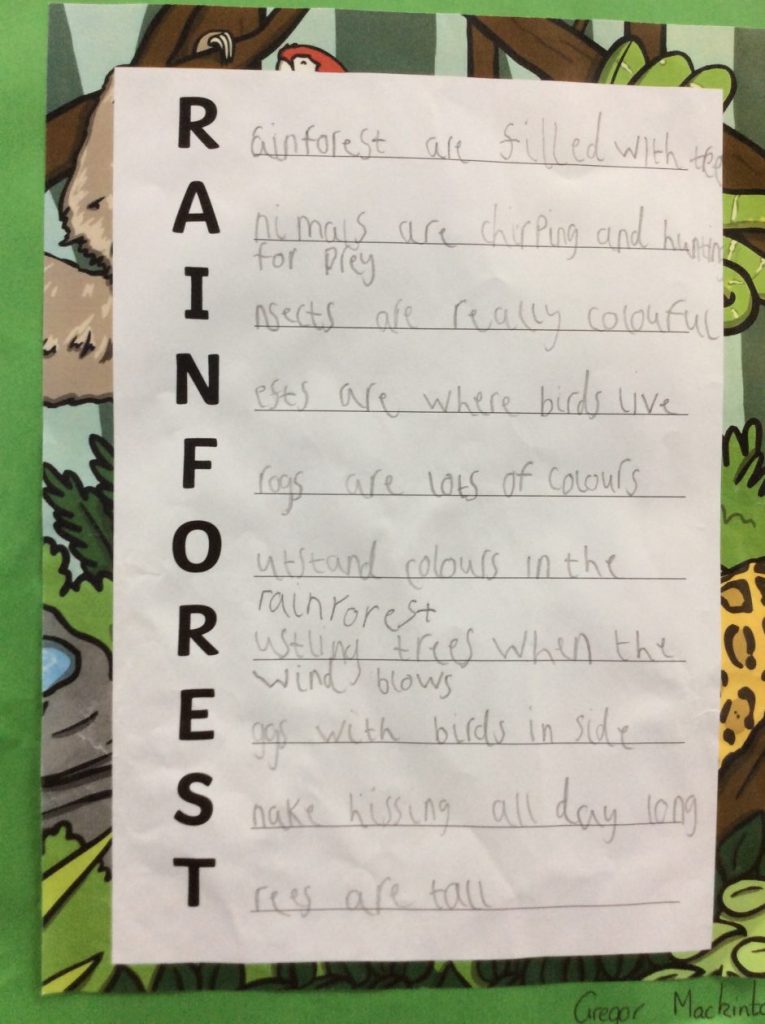 R ainforest are filled with tree
A nimals are chirping and hunting
for prey
I nsects are really colouful
N ests are where birds live
F rogs are lots of colours
O utstand colours in the
rainforest
R ustling trees when the
wind blows
E ggs with birds in side
S nake hissing all day long
T rees are tall
Gregor Mackinto